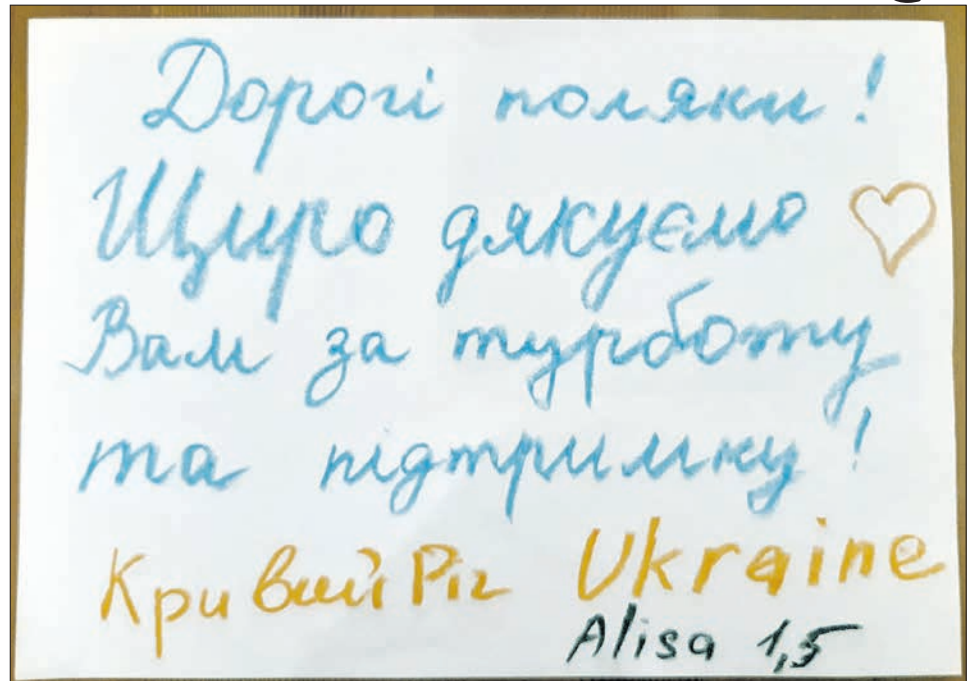 Дорогі поляки!
Щиро дякуємо
Вам за турботу
та підтримку!
Кривий Ріг Ukraine
Alisa 1,5